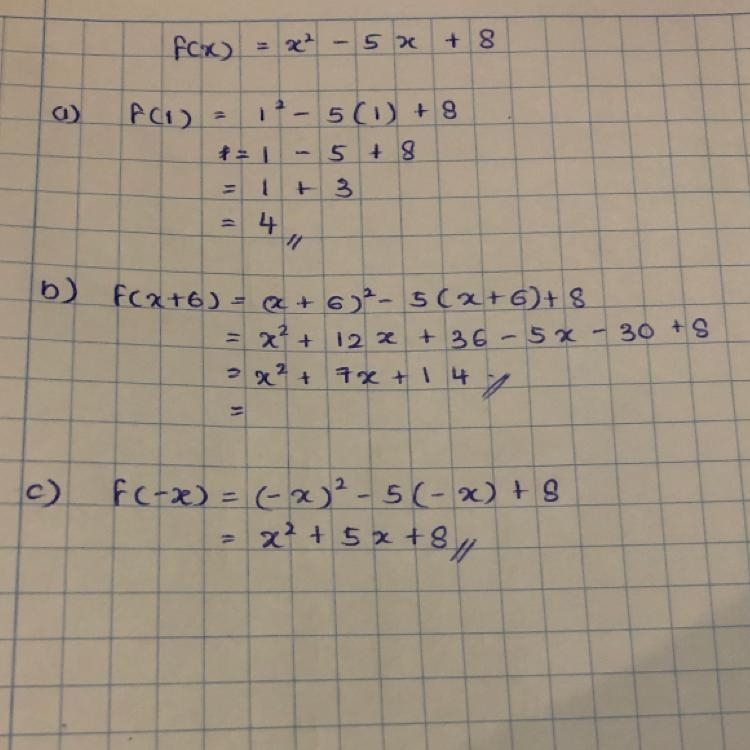 f(x) = x² - 5x + 8
a) f(1) = 1² - 5(1) + 8
= 1 - 5 + 8
= 1 + 3
= 4 //
b) f(x+6) = (x + 6)² - 5(x+6) + 8
= x² + 12x + 36 - 5x - 30 + 8
= x² + 7x + 14 //
=
c) f(-x) = (-x)² - 5(-x) + 8
= x² + 5x + 8 //